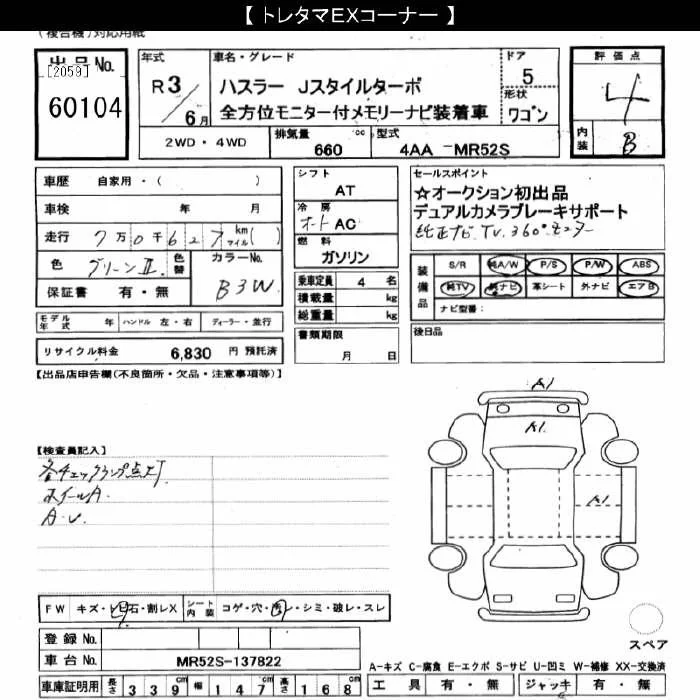 【 トレタマEXコーナー 】
(複合機)対応用紙
出品No.
[2059]
60104
年式
R3/6月
車名・グレード
ハスラー Jスタイルターボ
全方位モニター付メモリーナビ装着車
ドア
5
形状
ワゴン
評価点
4
内装
B
2WD・4WD
排気量
660 cc
型式
4AA -MR52S
車歴 自家用・( )
車検 年 月
走行 7万0千627 km マイル( )
色 グリーンⅡ 色替 カラーNo. B3W
保証書 有・無
モデル年式 年 ハンドル 左・右 ディーラー・並行
リサイクル料金 6,830 円 預託済
シフト
AT
冷房
オートAC
燃料
ガソリン
乗車定員 4 名
積載量 kg
総重量 kg
書類期限
月 日
セールスポイント
☆オークション初出品
デュアルカメラブレーキサポート
純正ナビ TV. 360°モニター
装備品
S/R 純A/W P/S P/W ABS
純TV 純ナビ 革シート 外ナビ エアB
ナビ型番:
後日品
【出品店申告欄(不良箇所・欠品・注意事項等)】
【検査員記入】
各チェックランプ点灯
ホイールA
A.U.
A1
A1
A1
FW キズ・ヒビ石・割レX
シート内装 コゲ・穴・汚レ・シミ・破レ・スレ
登録 No.
車台 No. MR52S-137822
車庫証明用 長さ 339cm 幅 147cm 高さ 168cm
スペア
A-キズ C-腐食 E-エクボ S-サビ U-凹ミ W-補修 XX-交換済
工具 有・無 ジャッキ 有・無